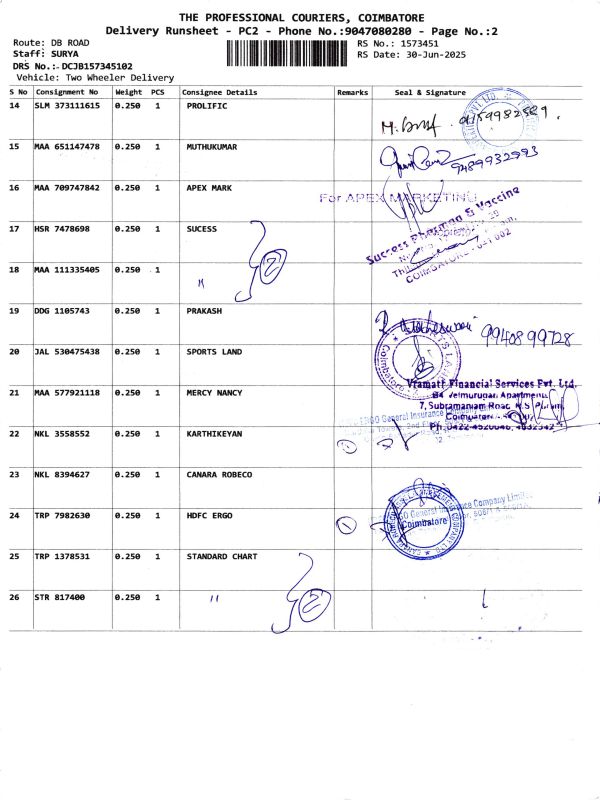 THE PROFESSIONAL COURIERS, COIMBATORE
Delivery Runsheet - PC2 - Phone No.:9047080280 - Page No.:2
Route: DB ROAD
Staff: SURYA
DRS No.:-DCJB157345102
Vehicle: Two Wheeler Delivery
RS No.: 1573451
RS Date: 30-Jun-2025
S No Consignment No Weight PCS Consignee Details Remarks Seal & Signature
14 SLM 373111615 0.250 1 PROLIFIC
15 MAA 651147478 0.250 1 MUTHUKUMAR
9489932993
16 MAA 709747842 0.250 1 APEX MARK
For APEX MARKETING
17 HSR 7478698 0.250 1 SUCESS
2
Success Pharma & Vaccine
COIMBATORE - 641 002
18 MAA 111335405 0.250 1 "
19 DDG 1105743 0.250 1 PRAKASH
9940899728
20 JAL 530475438 0.250 1 SPORTS LAND
Coimbatore
21 MAA 577921118 0.250 1 MERCY NANCY
Vramath Financial Services Pvt. Ltd.
Velmurugan Apartments
7, Subramaniam Road, R.S Puram,
Ph: 0422-4520046, 4032342
22 NKL 3558552 0.250 1 KARTHIKEYAN 1
ERGO General Insurance Company
23 NKL 8394627 0.250 1 CANARA ROBECO
24 TRP 7982630 0.250 1 HDFC ERGO 1
General Insurance Company Limited
Coimbatore
25 TRP 1378531 0.250 1 STANDARD CHART
26 STR 817400 0.250 1 " 2